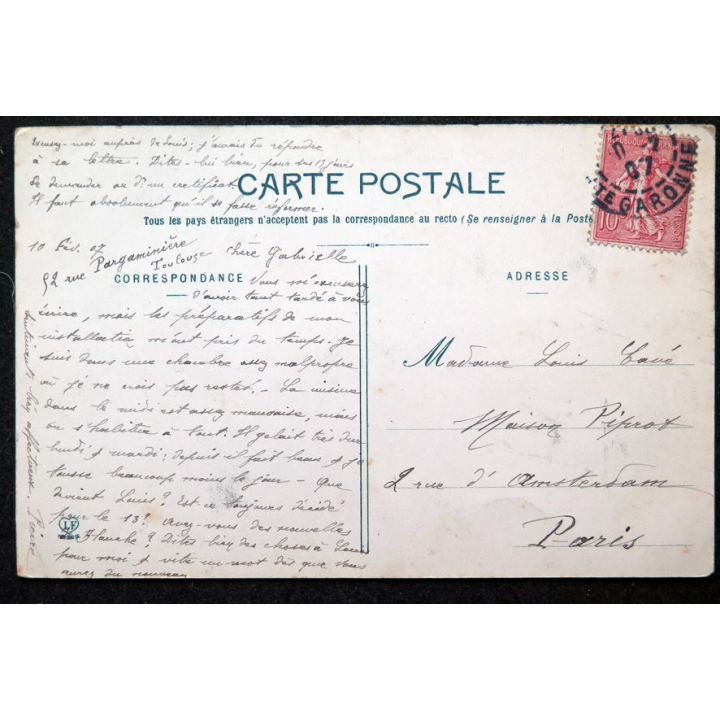 Excusez-moi auprès de Louis ; j'aurais dû répondre
à sa lettre. Dites-lui bien, pour ses 13 jours
de demander un certificat.
Il faut absolument qu'il se fasse réformer.
CARTE POSTALE
Tous les pays étrangers n'acceptent pas la correspondance au recto (Se renseigner à la Poste
10 Fév. 07
52 rue Pargaminière
Toulouse
Chère Gabrielle
CORRESPONDANCE
Vous m'excuserez
d'avoir tant tardé à vous
écrire, mais les préparatifs de mon
installation m'ont pris du temps. Je
suis dans une chambre assez malpropre
où je ne crois pas rester. - La cuisine
dans le midi est assez mauvaise, mais
on s'habitue à tout. Il gelait très dur
lundi & mardi ; depuis il fait beau & je
tousse beaucoup moins le jour - Que
devient Louis ? Est-ce toujours décidé
pour le 13 ? Avez-vous des nouvelles
Blanche ? Dites bien des choses à Louis
pour moi & vite un mot dès que vous
aurez du nouveau
bien affectueux. Pierre
LF
ADRESSE
Madame Louis Cavé
Maison Piprot
2 rue d'Amsterdam
Paris
REPUBLIQUE FRANCAISE
10
POSTES
07
HTE GARONNE